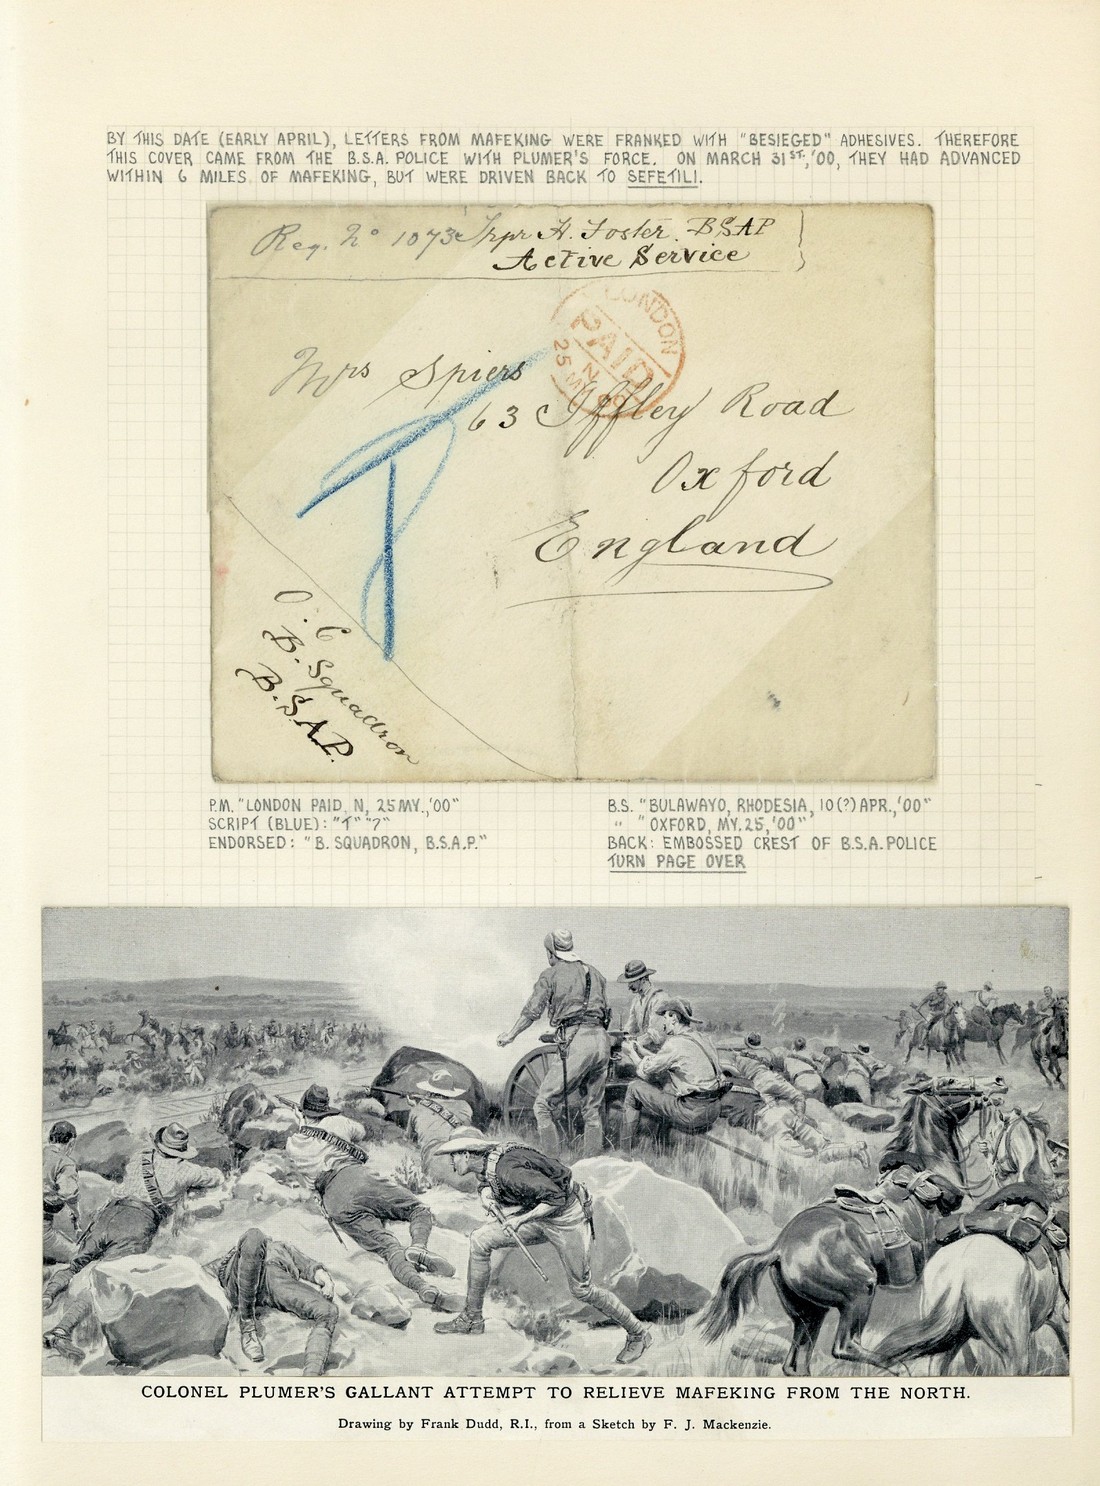 BY THIS DATE (EARLY APRIL), LETTERS FROM MAFEKING WERE FRANKED WITH "BESIEGED" ADHESIVES. THEREFORE
THIS COVER CAME FROM THE B.S.A. POLICE WITH PLUMER'S FORCE. ON MARCH 31ST, '00, THEY HAD ADVANCED
WITHIN 6 MILES OF MAFEKING, BUT WERE DRIVEN BACK TO SEFETILI.
Reg. No 1073 Trpr H. Foster. BSAP
Active Service
LONDON
PAID
N
25 MY 00
Mrs Spiers
63 Iffley Road
Oxford
England
T
O.C
B. Squadron
B.S.A.P.
P.M. "LONDON PAID, N, 25 MY., '00"
SCRIPT (BLUE): "T" "7"
ENDORSED: "B. SQUADRON, B.S.A.P."
B.S. "BULAWAYO, RHODESIA, 10(?) APR., '00"
" " OXFORD, MY. 25, '00"
BACK: EMBOSSED CREST OF B.S.A. POLICE
TURN PAGE OVER
COLONEL PLUMER'S GALLANT ATTEMPT TO RELIEVE MAFEKING FROM THE NORTH.
Drawing by Frank Dudd, R.I., from a Sketch by F. J. Mackenzie.